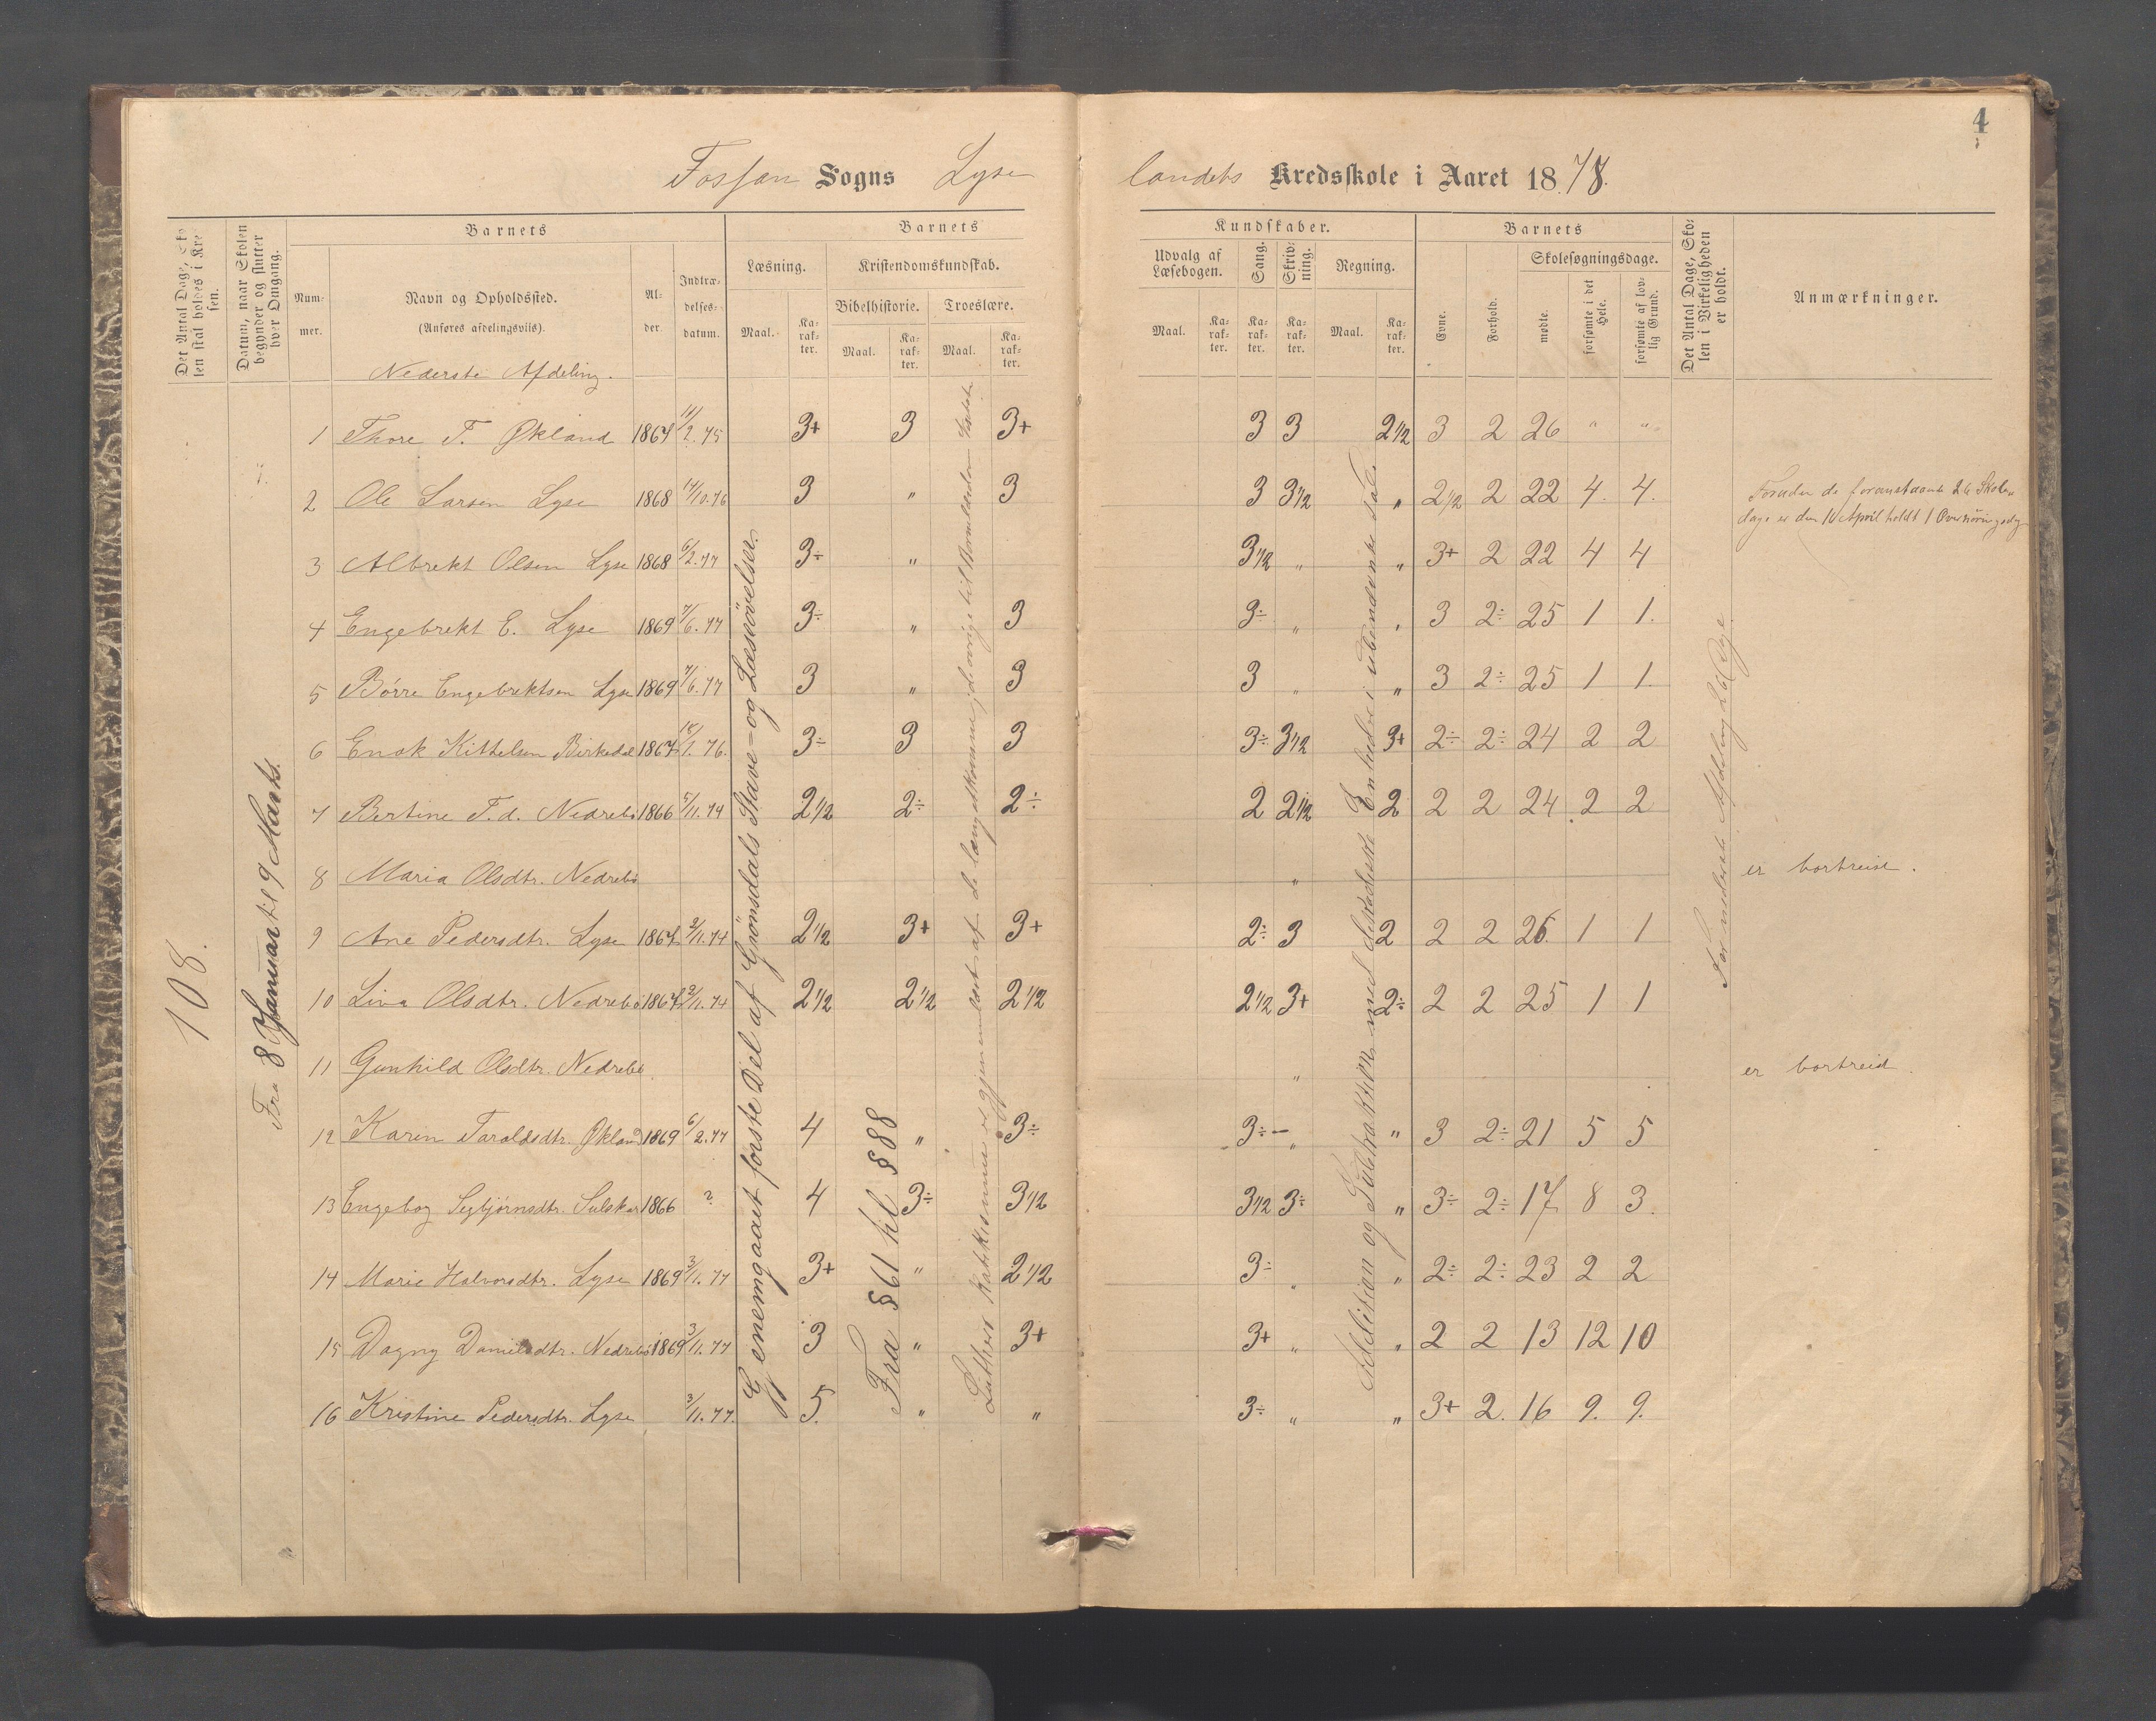 4
Fossan Sogns Lyse landets Kredsskole i Aaret 1878.
Det Antal Dage, Sko
len skal holdes i Kre
sen.
Datum, naar Skolen
begynder og slutter
hver Omgang.
Barnets
Num-
mer.
Navn og Opholdssted.
(Anføres afdelingsviis).
Al-
der.
Indtræ-
delses-
datum.
Barnets
Læsning.
Maal.
Ka-
rak-
ter.
Kristendomskundskab.
Bibelhistorie.
Maal.
Ka-
rak-
ter.
Troeslære.
Maal.
Ka-
rak-
ter.
Kundskaber.
Udvalg af
Læsebogen.
Maal.
Ka-
rak-
ter.
Sang.
Ka-
rak-
ter.
Skriv-
ning.
Ka-
rak-
ter.
Regning.
Maal.
Ka-
rak-
ter.
Barnets
Evne.
Forhold.
Skolesøgningsdage.
mødte.
forsømte i det
Hele.
forsømte af lov-
lig Grund.
Det Antal Dage, Sko-
len i Virkeligheden
er holdt.
Anmærkninger.
Nederste Afdeling.
108.
Fra 8 Januar til 9 Marts.
Gjenemgaaet første Del af Grønsdals Stave- og Læseøvelser.
Fra § 61 til § 88
Luthers Katekismus er gjennemlært af de længstkomne, de øvrige til
Addition og Subtraktion med Enheder i ubenævnte Tal
Forenderet Afdeling 26 Dage.
1 Thore T. Økland 1867 11/2.75 3+ 3 3+ 3 3 2 1/2 3 2 26 " "
2 Ole Larsen Lyse 1868 14/10.76 3 " 3 3 3 1/2 " 2 1/2 2 22 4. 4.
Foruden de foranstaaende 26 Skole
dage er den 10 April holdt 1
3 Albrekt Olsen Lyse 1868 6/2.77 3÷ " 3 1/2 " " 3+ 2 22 4 4
4 Engebrekt E. Lyse 1869 7/6.77 3÷ " 3 3÷ " " 3 2÷ 25 1 1.
5 Børre Engebrektsen Lyse 1869 7/6.77 3 " 3 3 " " 3 2÷ 25 1 1.
6 Enok Kittelsen Birkedal 1867 18/1.76. 3÷ 3 3 3÷ 3 1/2 3+ 2÷ 2÷ 24 2 2
7 Bertine T.d. Nedrebø 1866 5/11.74 2 1/2 2÷ 2÷ 2 2 1/2 2 2 2 24 2 2
8 Maria Olsdtr. Nedrebø " er bortreist.
9 Ane Pedersdtr. Lyse 1867 2/11.74 2 1/2 3+ 3+ 2÷ 3 2 2 2 26. 1 1
10 Lina Olsdtr. Nedrebø 1867 2/11.74 2 1/2 2 1/2 2 1/2 2 1/2 3+ 2÷ 2 2 25 1 1
11 Gunhild Olsdtr. Nedrebø " er bortreist.
12 Karen Taraldsdtr. Økland 1869 6/2.77 4 " 3÷ 3÷ " " 3 2÷ 21 5 5
13 Engebog Segbjørnsdtr. Sulskar 1866 ? 4 3÷ 3 1/2 3 1/2 3÷ " 3÷ 2÷ 17 8 3.
14 Marie Halvorsdtr. Lyse 1869 3/11.77 3+ " 2 1/2 3÷ " " 2÷ 2÷ 23 2 2
15 Dagny Danielsdtr. Nedrebø 1869 3/11.77 3 " 3+ 3+ " " 2 2 13 12 10
16 Kristine Pedersdtr. Lyse 3/11.77. 5. " " 3÷ " " 3+ 2. 16 9. 9.